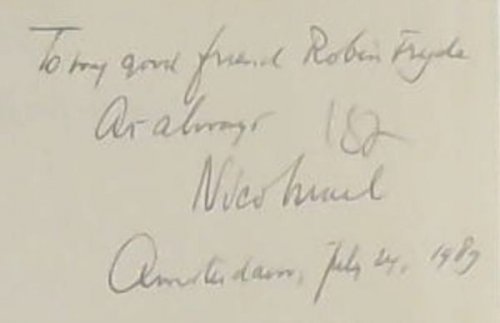 To my good friend Robin Fryde
As always 182
Nico Israel
Amsterdam, July 24, 1989